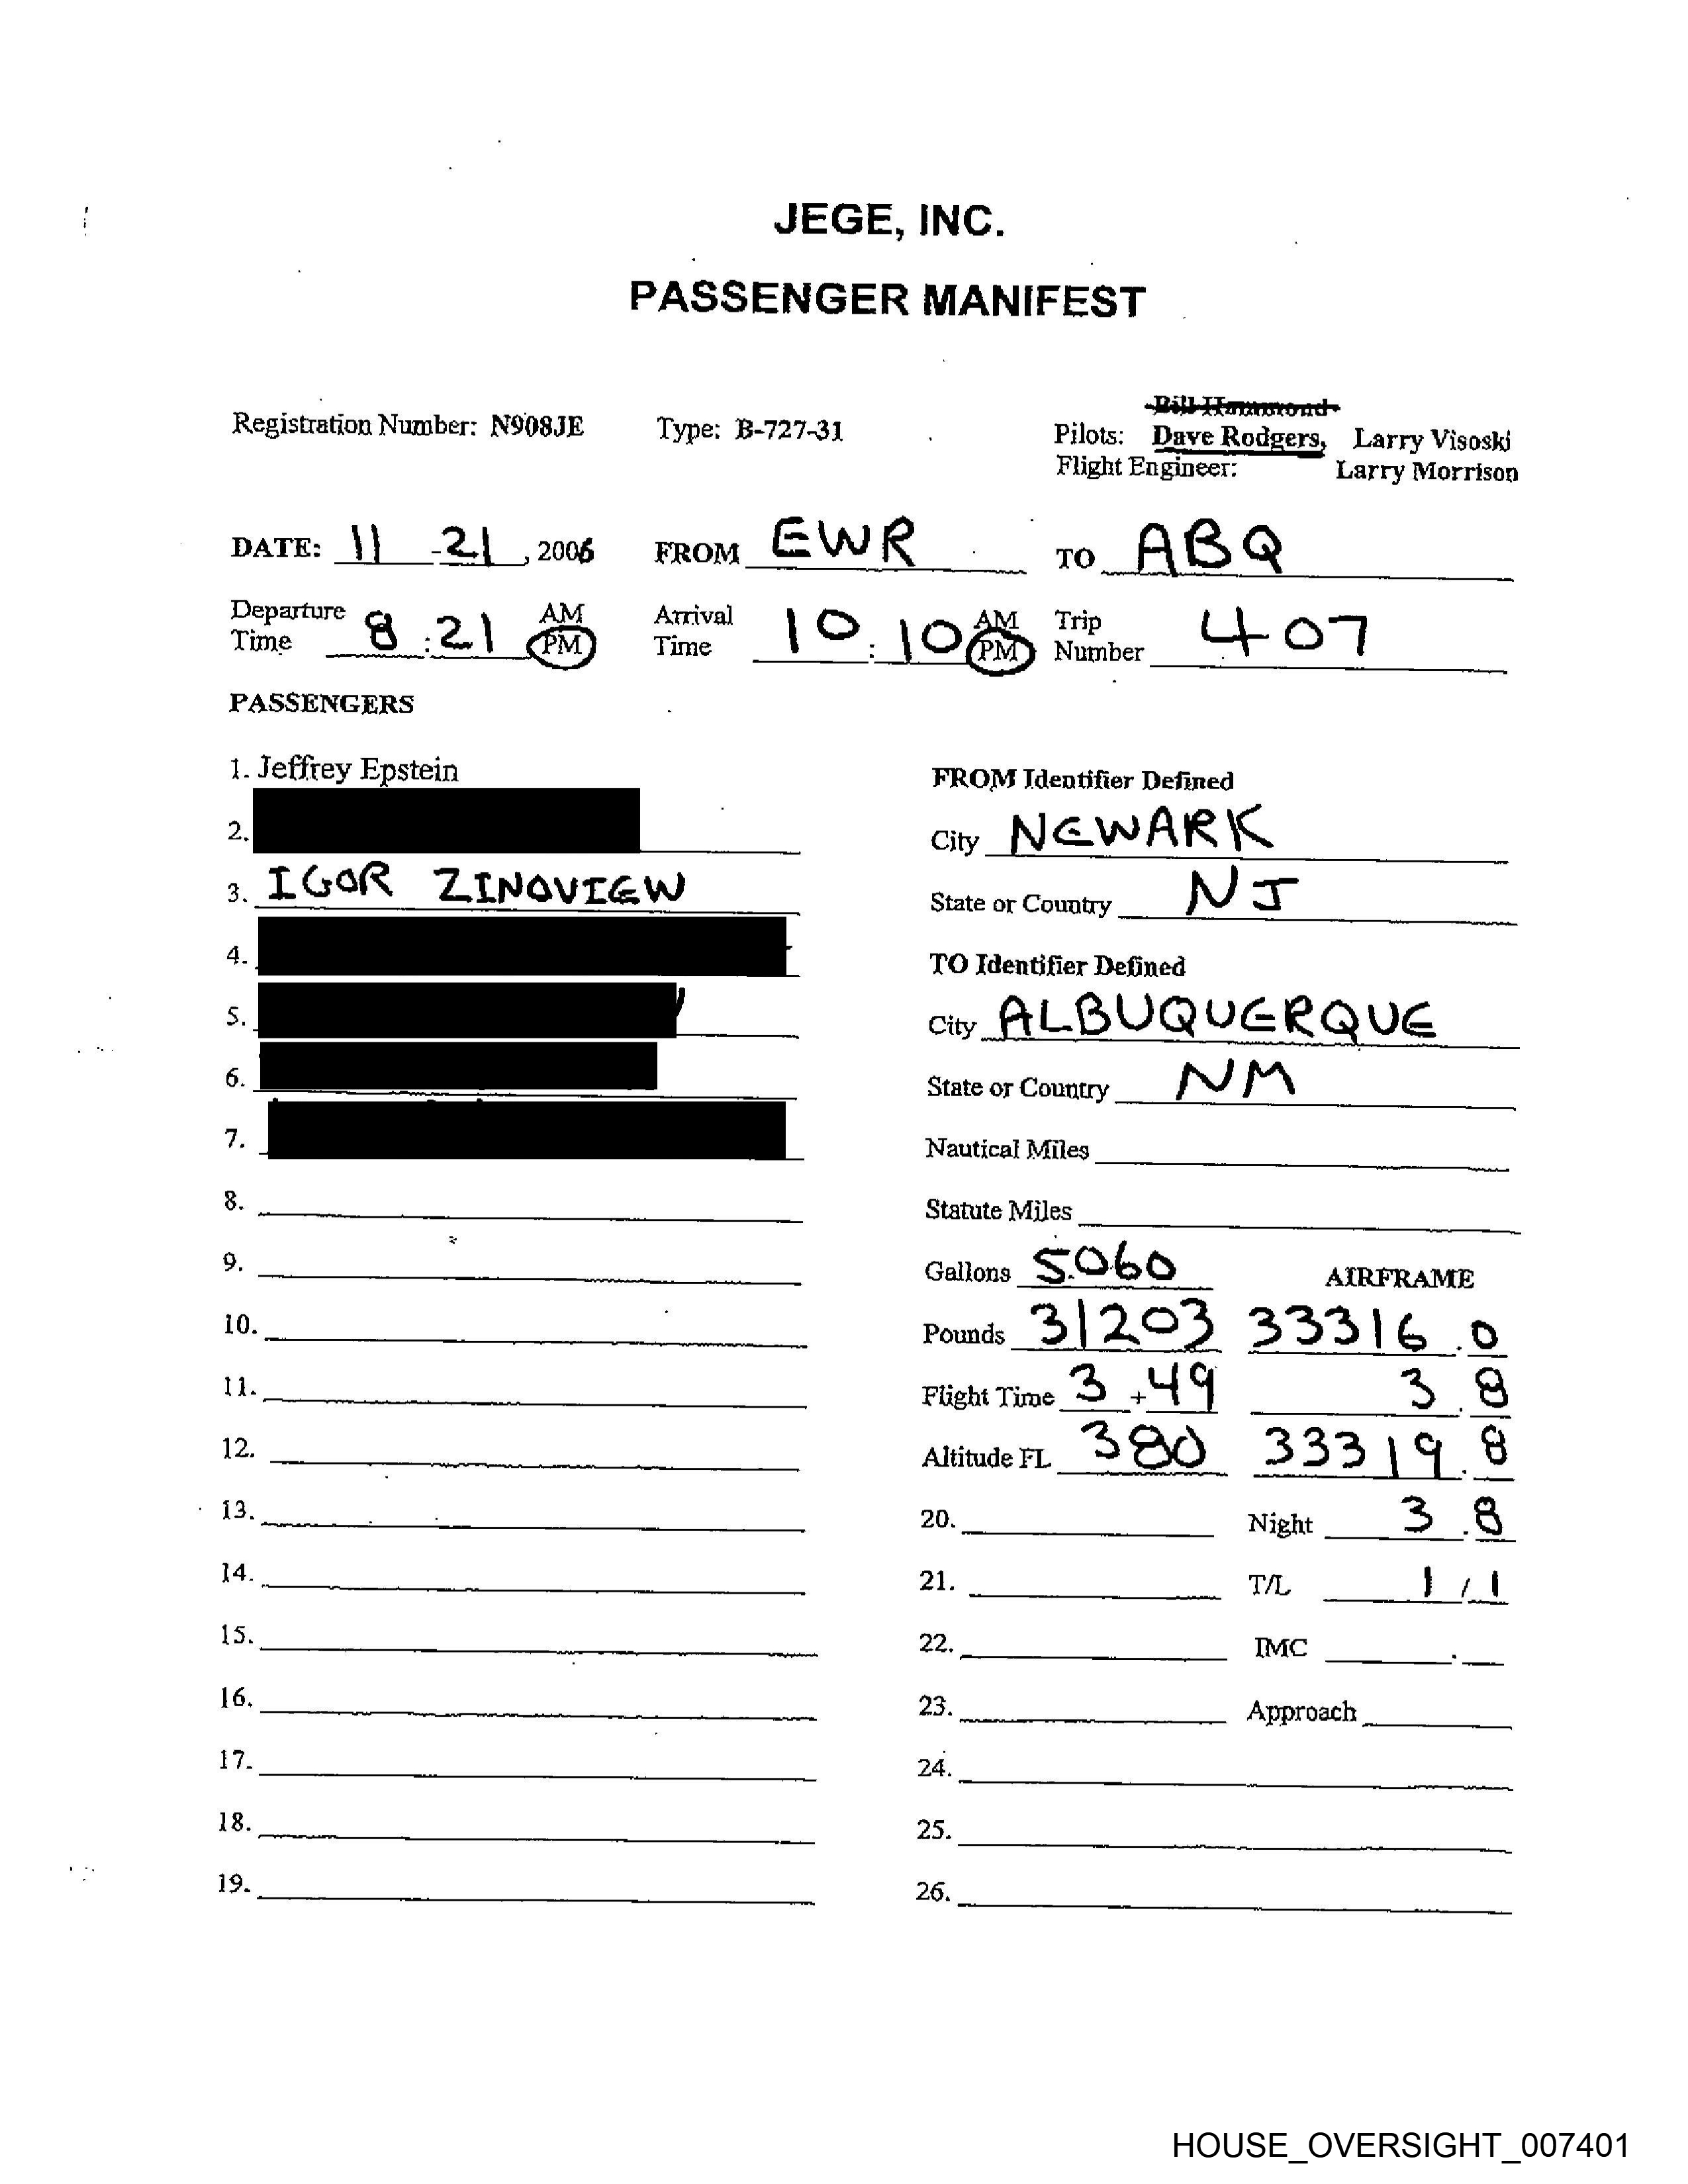 JEGE, INC.
PASSENGER MANIFEST
Bill Hammond
Registration Number: N908JE Type: B-727-31 Pilots: Dave Rodgers, Larry Visoski
Flight Engineer: Larry Morrison
DATE: 11 - 21, 2006 FROM EWR TO ABQ
Departure Time 8:21 AM PM Arrival Time 10:10 AM PM Trip Number 407
PASSENGERS
1. Jeffrey Epstein
2.
3. IGOR ZINOVIEW
4.
5.
6.
7.
8.
9.
10.
11.
12.
13.
14.
15.
16.
17.
18.
19.
FROM Identifier Defined
City NEWARK
State or Country NJ
TO Identifier Defined
City ALBUQUERQUE
State or Country NM
Nautical Miles
Statute Miles
Gallons 5060 AIRFRAME
Pounds 31203 33316.0
Flight Time 3+49 3.8
Altitude FL 380 33319.8
20. Night 3.8
21. T/L 1/1
22. IMC .
23. Approach
24.
25.
26.
HOUSE_OVERSIGHT_007401